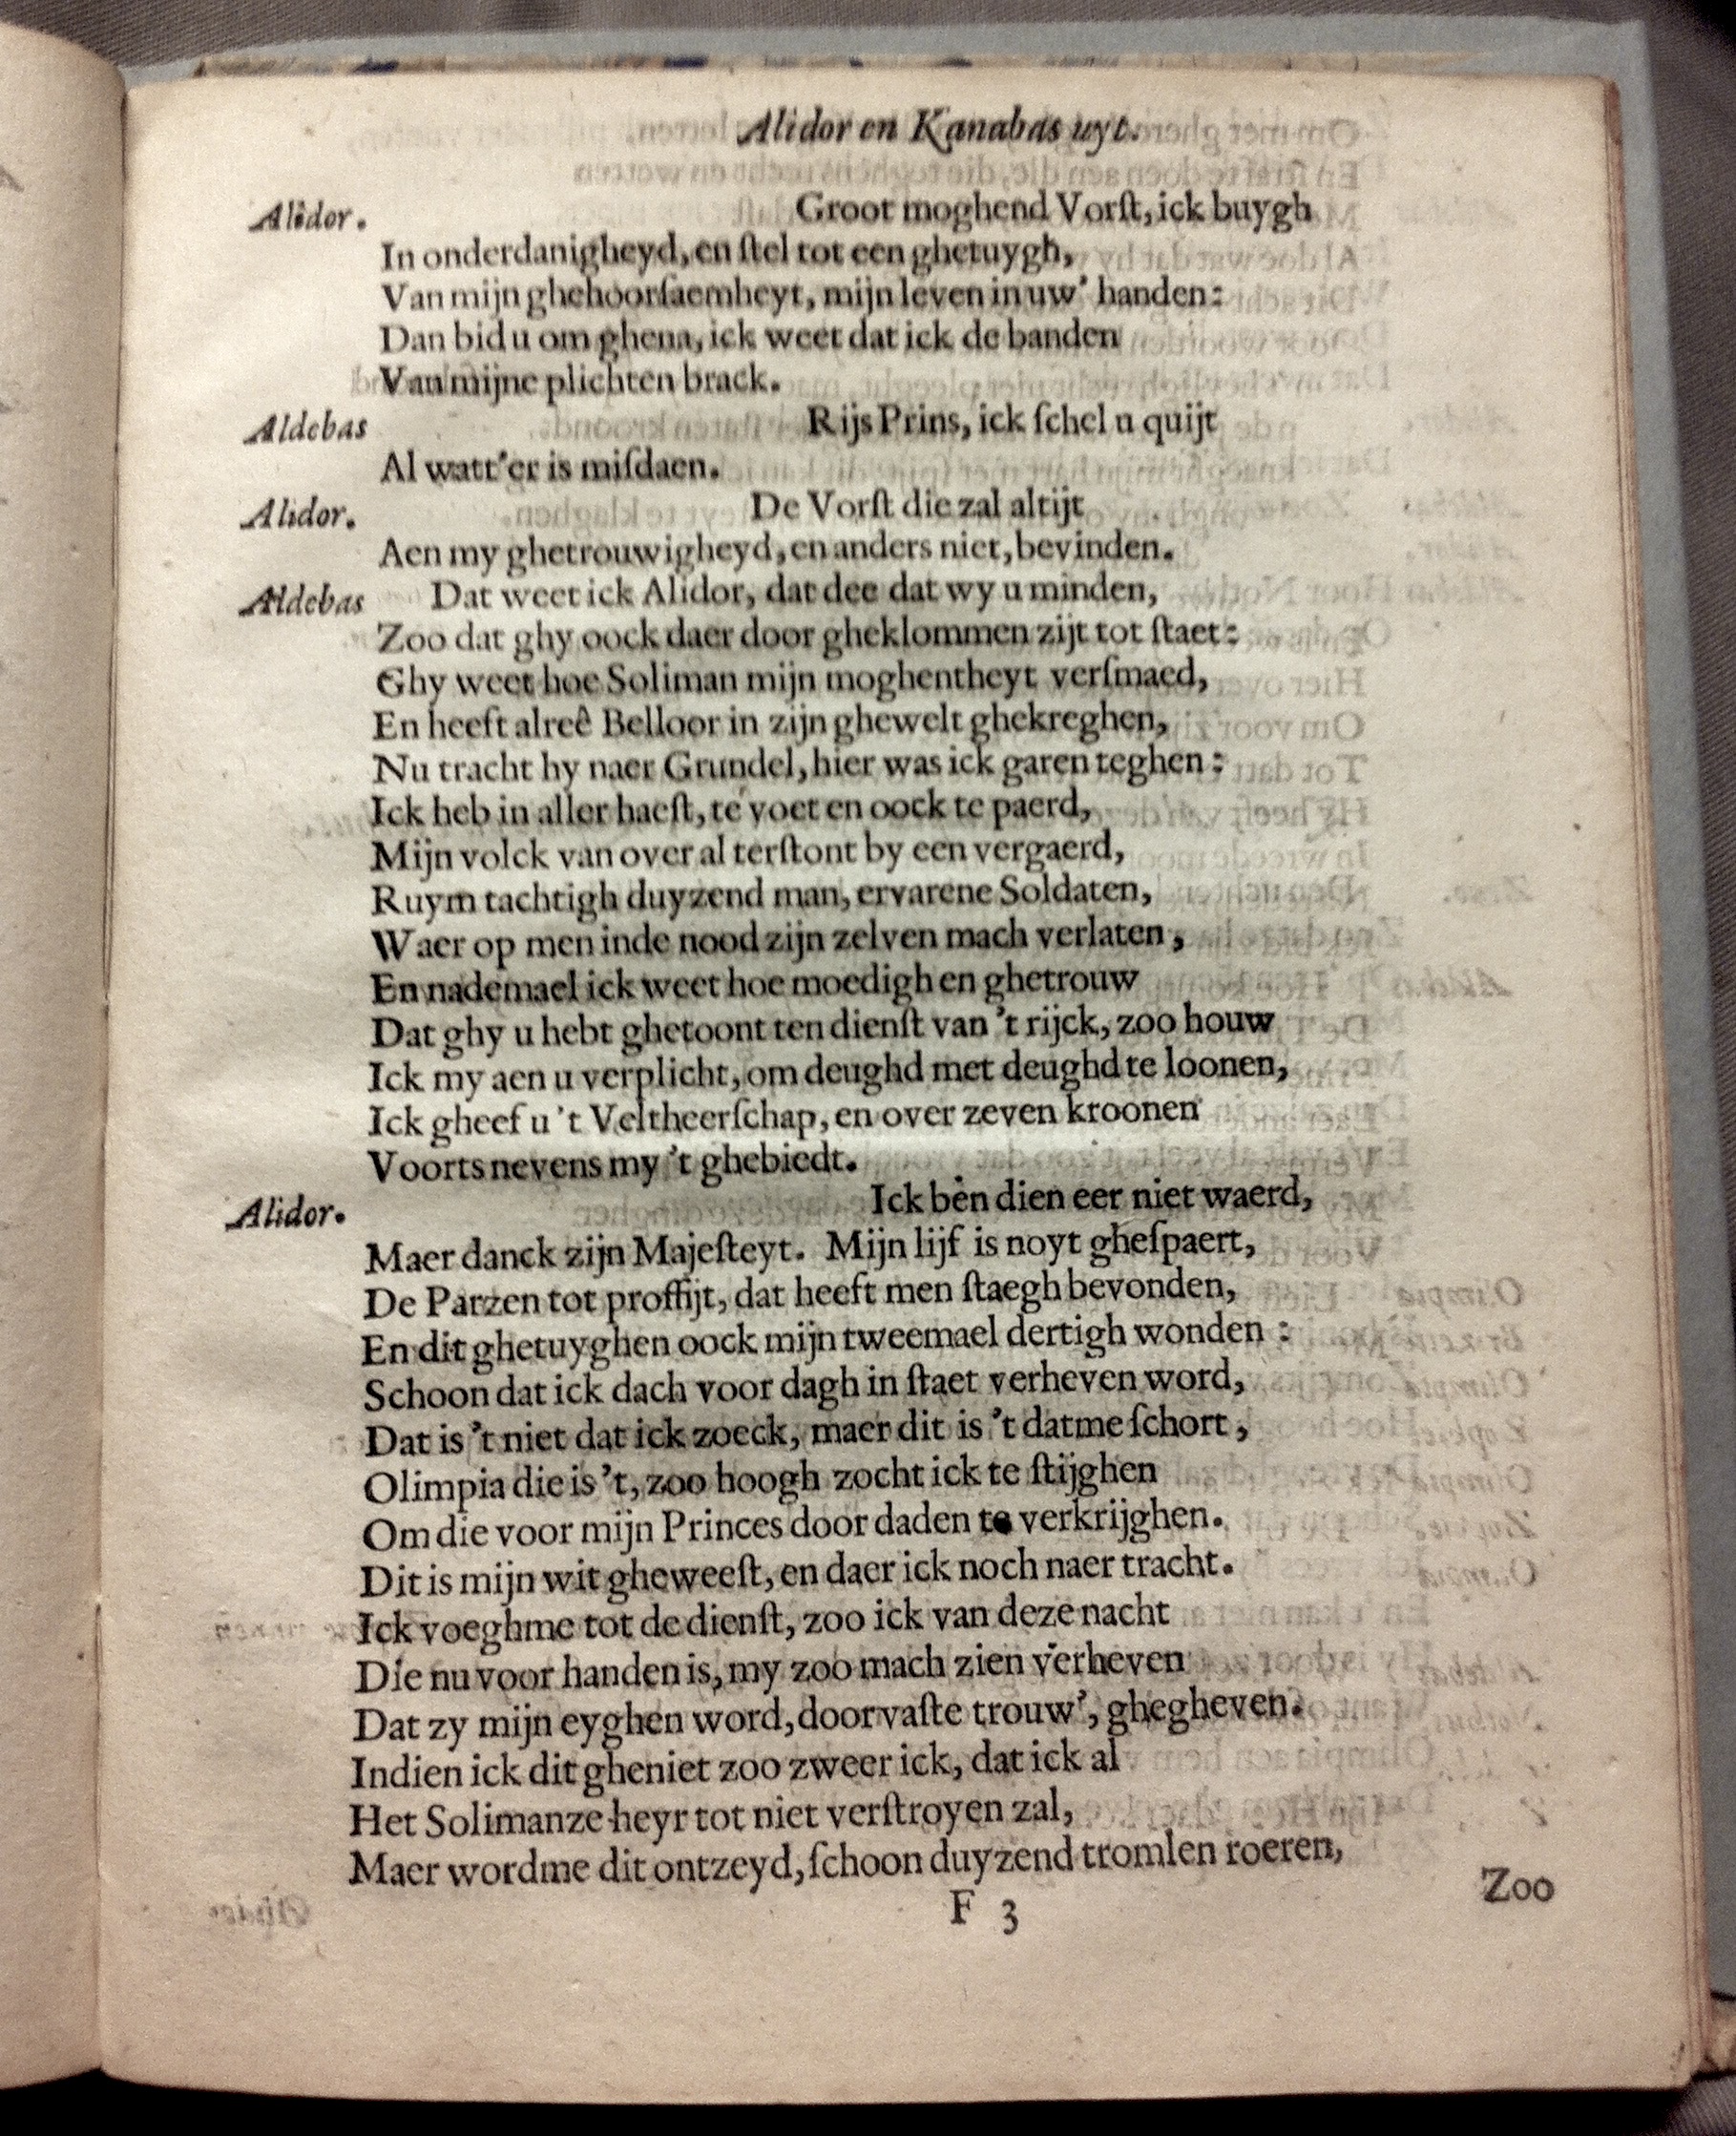 Alidor en Kanabas uyt.
Alidor. Groot moghend Vorſt, ick buygh
In onderdanigheyd, en ſtel tot een ghetuygh,
Van mijn ghehoorſaemheyt, mijn leven in uw' handen:
Dan bid u om ghena, ick weet dat ick de banden
Van mijne plichten brack.
Aldebas Rijs Prins, ick ſchel u quijt
Al watt'er is miſdaen.
Alidor. De Vorſt die zal altijt
Aen my ghetrouwigheyd, en anders niet, bevinden.
Aldebas Dat weet ick Alidor, dat dee dat wy u minden,
Zoo dat ghy oock daer door gheklommen zijt tot ſtaet:
Ghy weet hoe Soliman mijn moghentheyt verſmaed,
En heeft alreê Belloor in zijn ghewelt ghekreghen,
Nu tracht hy naer Grundel, hier was ick garen teghen:
Ick heb in aller haeſt, te voet en oock te paerd,
Mijn volck van over al terſtont by een vergaerd,
Ruym tachtigh duyzend man, ervarene Soldaten,
Waer op men inde nood zijn zelven mach verlaten,
En nademael ick weet hoe moedigh en ghetrouw
Dat ghy u hebt ghetoont ten dienſt van 't rijck, zoo houw
Ick my aen u verplicht, om deughd met deughd te loonen,
Ick gheef u 't Veltheerſchap, en over zeven kroonen
Voorts nevens my 't ghebiedt.
Alidor. Ick ben dien eer niet waerd,
Maer danck zijn Majeſteyt. Mijn lijf is noyt gheſpaert,
De Parzen tot proffijt, dat heeft men ſtaegh bevonden,
En dit ghetuyghen oock mijn tweemael dertigh wonden:
Schoon dat ick dach voor dagh in ſtaet verheven word,
Dat is 't niet dat ick zoeck, maer dit is 't datme ſchort,
Olimpia die is 't, zoo hoogh zocht ick te ſtijghen
Om die voor mijn Princes door daden te verkrijghen.
Dit is mijn wit gheweeſt, en daer ick noch naer tracht.
Ick voeghme tot de dienſt, zoo ick van deze nacht
Die nu voor handen is, my zoo mach zien verheven
Dat zy mijn eyghen word, door vaſte trouw', ghegheven.
Indien ick dit gheniet zoo zweer ick, dat ick al
Het Solimanze heyr tot niet verſtroyen zal,
Maer wordme dit ontzeyd, ſchoon duyzend tromlen roeren,
F 3
Zoo